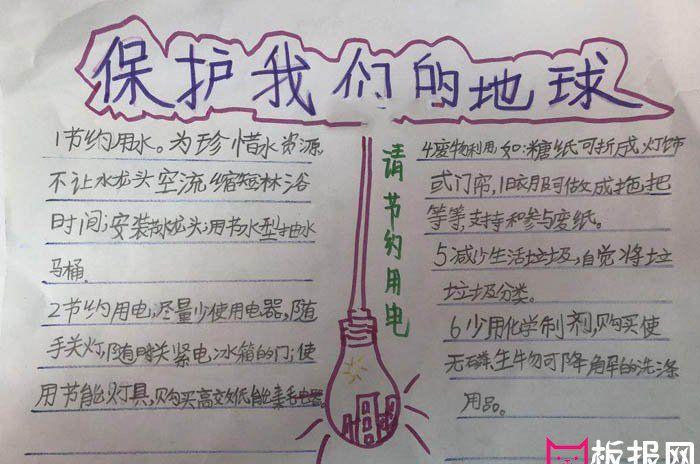 保护我们的地球
1节约用水。为珍惜水资源,
不让水龙头空流缩短林浴
时间;安装水龙头;用节水型抽水
马桶。
2节约用电;尽量少使用电器,随
手关灯,随时关紧电冰箱的门;使
用节能灯具,购买高效低能耗电器
请节约用电
4废物利用,如:糖纸可折成,灯饰
或门帘,旧衣服可做成拖把
等等,支持和参与废纸。
5减少生活垃圾,自觉将垃
垃圾分类。
6少用化学制剂,购买使
无磷、生物可降解的洗涤
用品。
板报网